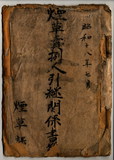 昭和十八年七月
煙草耕作人引継関係書
煙草係